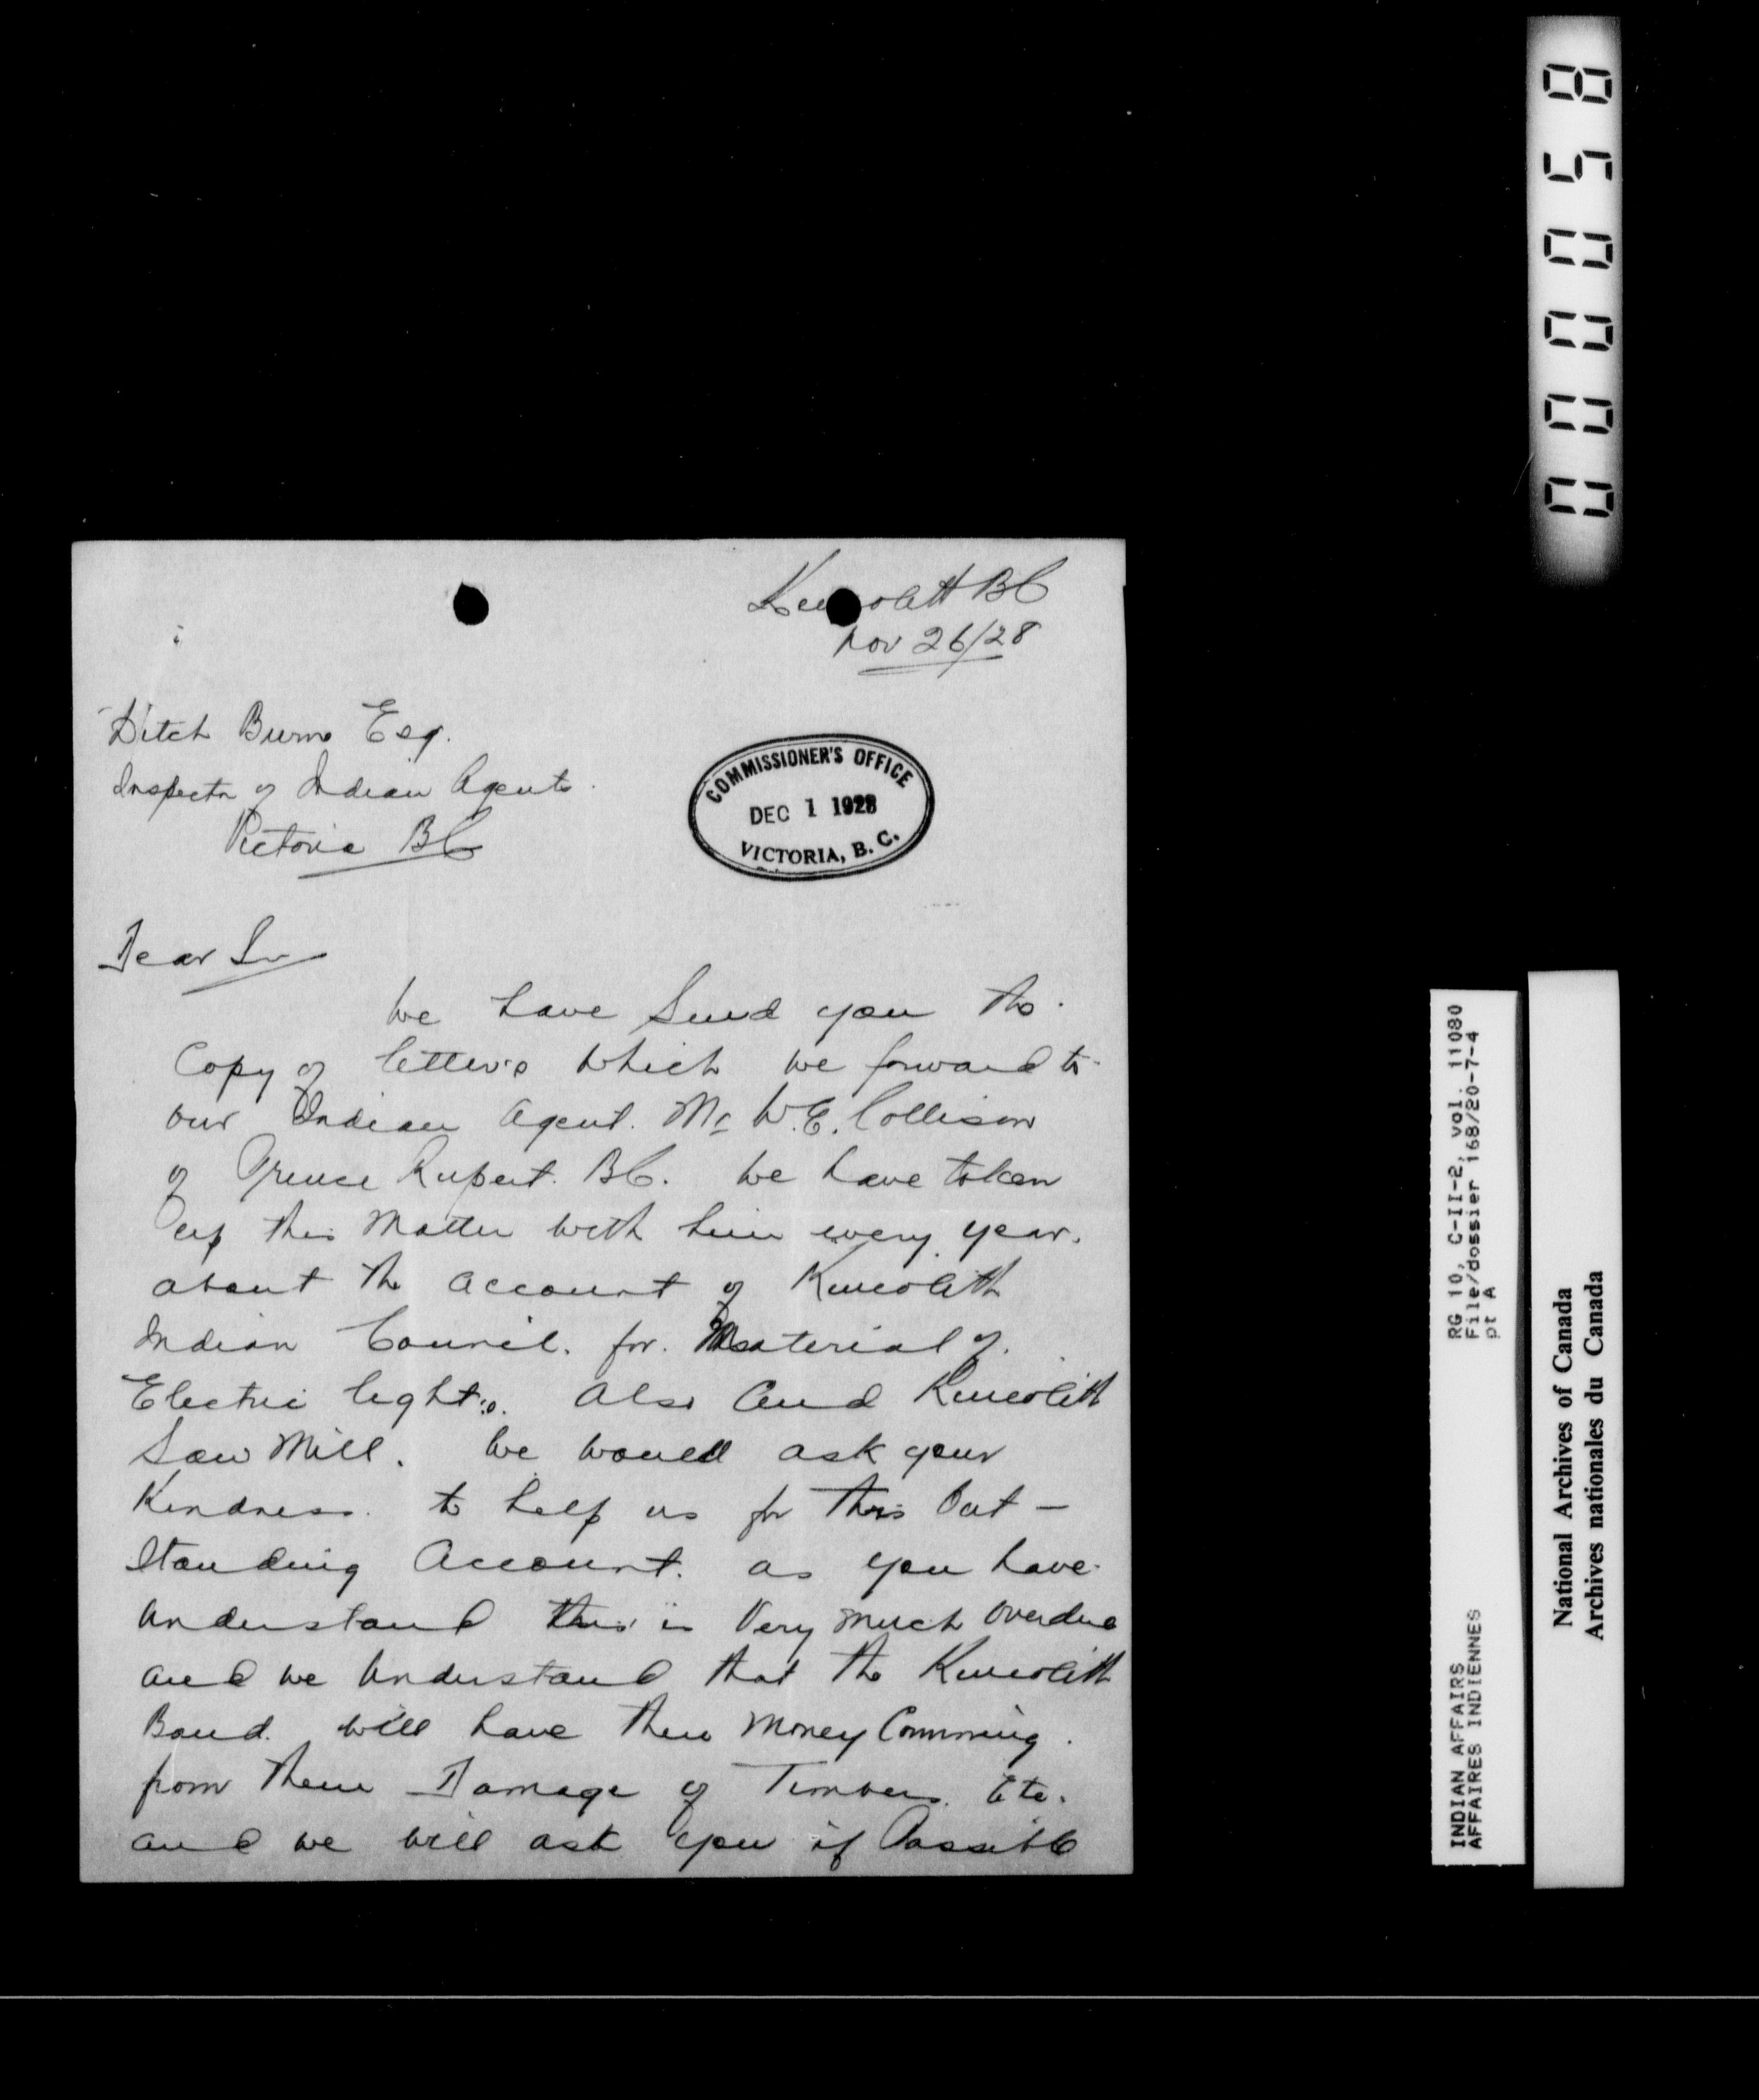 Kincolith BC
Nov 26/28
Ditch Burns Esq.
Inspector of Indian Agents.
Victoria BC
COMMISSIONER'S OFFICE
DEC 1 1928
VICTORIA, B. C.
Dear Sir
We have Send you the
Copy of letters which we forward to
our Indian Agent. Mr W.E. Collison
of Prince Rupert. BC. We have taken
up this Matter with him every year.
about the account of Kincolith
Indian Council. for. Material of.
Electric lights. Also and Kincolith
Saw Mill. We would ask your
Kindness. to help us for this Out-
standing Account. as you have
understand this is Very much overdue
and we understand that the Kincolith
Band. will have then Money Comming.
from them Damage of Timbers. Etc.
and we will ask you if Possible
000058
RG 10, C-II-2, vol. 11080
File/dossier 168/20-7-4
pt A
INDIAN AFFAIRS
AFFAIRES INDIENNES
National Archives of Canada
Archives nationales du Canada